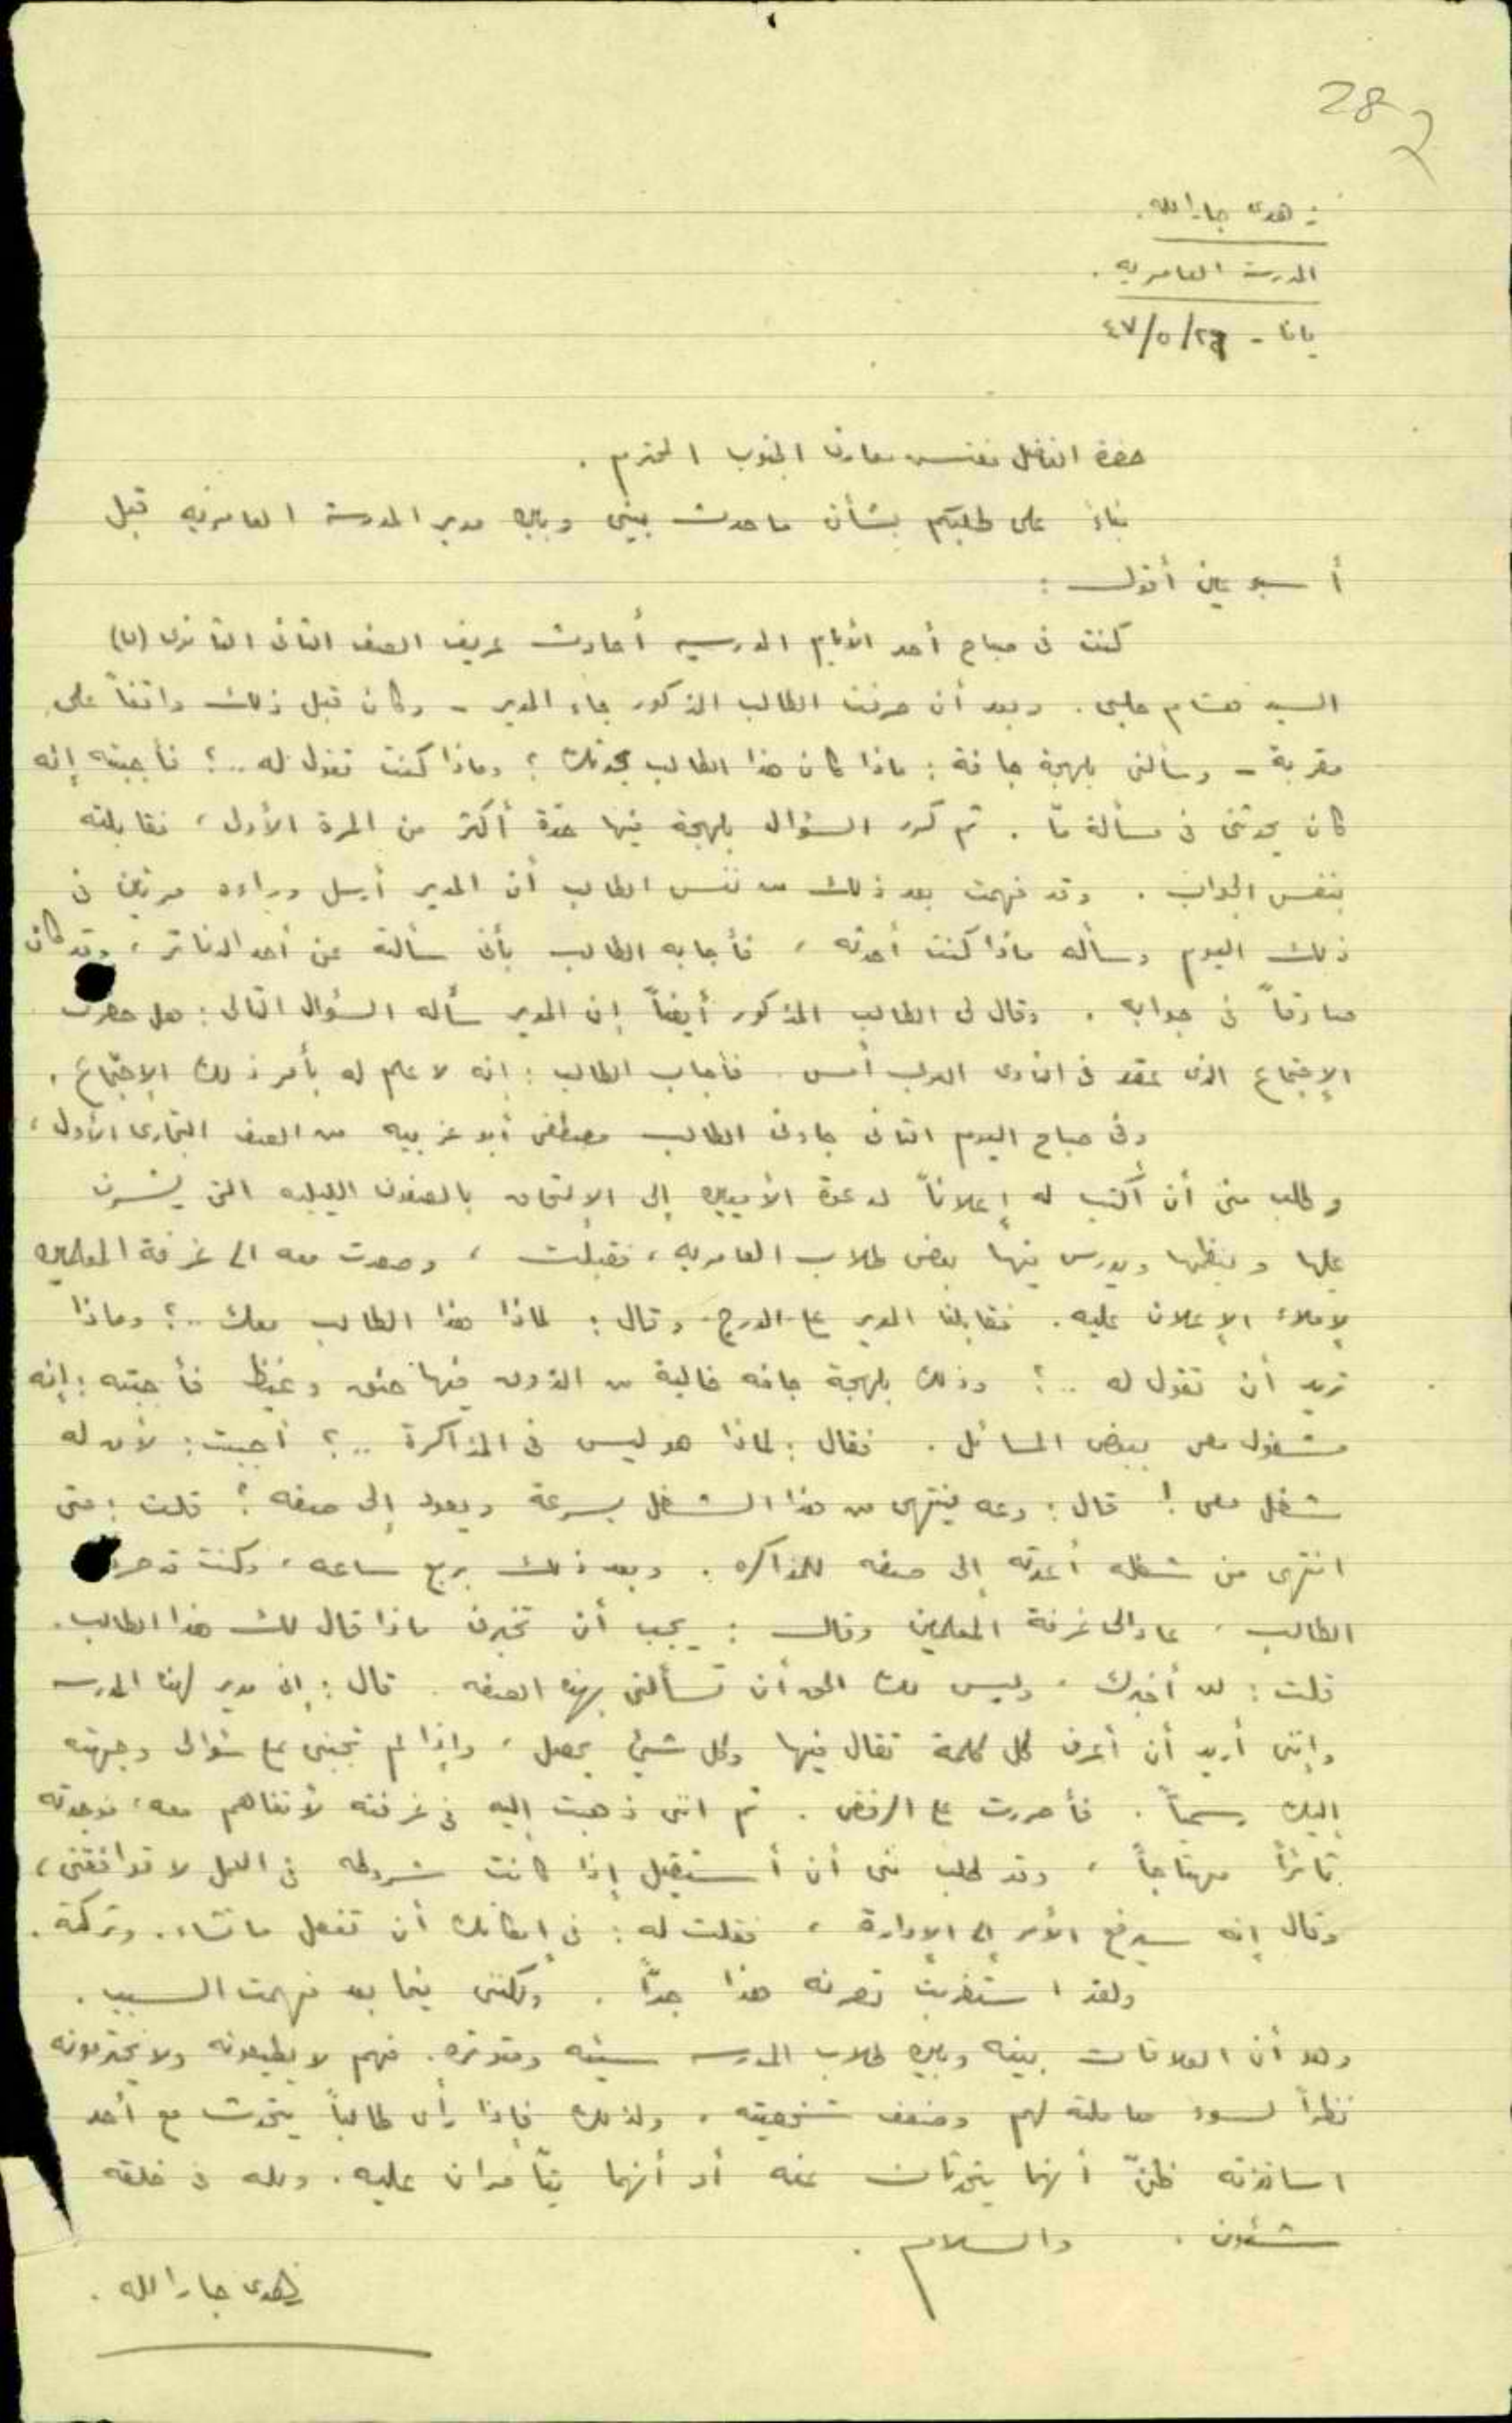 28
زهدي جارالله.
المدرسة العامرية.
يافا - ٤٧/٥/٢٦
حضرة الفاضل مفتش معارف الجنوب المحترم.
بناءً على طلبكم بشأن ما حدث بيني وبين مدير المدرسة العامرية قبل
أسبوعين أقول:
كنت في صباح أحد الأيام المدرسية أحادث عريف الصف الثاني الثانوي (ب)
السيد هشام حلبي. وبعد أن صرفت الطالب المذكور جاء المدير - وكان قبل ذلك واقفاً على
مقربة - وسألني بلهجة جافة: ماذا كان هذا الطالب يحدثك؟ وماذا كنت تقول له ..؟ فأجبته إنه
كان يحدثني في مسألة ما. ثم كرر السؤال بلهجة فيها حدة أكثر من المرة الأولى، فقابلته
بنفس الجواب. وقد فهمت بعد ذلك من نفس الطالب أن المدير أرسل وراءه مرتين في
ذلك اليوم وسأله ماذا كنت أحدثه، فأجابه الطالب بأني سألته عن أحد الدفاتر، وقد كان
صادقاً في جوابه. وقال لي الطالب المذكور أيضاً إن المدير سأله السؤال التالي: هل حضرت
الإجتماع الذي عقد في النادي العربي أمس. فأجاب الطالب: إنه لا علم له بأمر ذلك الإجتماع.
وفي صباح اليوم الثاني جاءني الطالب مصطفى أبو غربيه من الصف التجاري الأول،
وطلب مني أن أكتب له إعلاناً لدعوة الأميين إلى الإلتحاق بالصفوف الليليه التي يشرف
عليها وينظمها ويدرس فيها بعض طلاب العامريه، فقبلت، وصعدت معه الى غرفة المعلمين
لإملاء الإعلان عليه. فقابلنا المدير على الدرج وقال: لماذا هذا الطالب معك ..؟ وماذا
تريد أن تقول له ..؟ وذلك بلهجة جافه خالية من الذوق فيها حنق وغيظ فأجبته: إنه
مشغول معي ببعض المسائل. فقال: لماذا هو ليس في المذاكرة ..؟ أجبت: لأن له
شغل معي! قال: دعه ينتهي من هذا الشغل بسرعة ويعود إلى صفه؟ قلت: متى
انتهى من شغله أعدته إلى صفه للمذاكره. وبعد ذلك بربع ساعه، وكنت قد صرفت
الطالب، عاد الى غرفة المعلمين وقال: يجب أن تخبرني ماذا قال لك هذا الطالب.
قلت: لن أخبرك، وليس لك الحق أن تسألني بهذه الصفه. قال: إني مدير لهذه المدرسه
وإنني أريد أن أعرف كل كلمة تقال فيها وكل شيئ يحصل، وإذا لم تجبني على سؤالي وجهته
إليك رسمياً. فأصررت على الرفض. ثم انني ذهبت إليه في غرفته لأتفاهم معه، فوجدته
ثائراً مهتاجاً، وقد طلب مني أن أستقيل إذا كانت شروطه في العمل لا توافقني،
وقال إنه سيرفع الأمر إلى الإدارة، فقلت له: في إمكانك أن تفعل ما تشاء. وتركته.
ولقد استغربت تصرفه هذا جداً. ولكنني فيما بعد فهمت السبب.
وهو أن العلاقات بينه وبين طلاب المدرسه سيئه ومتوتره. فهم لا يطيعونه ولا يحترمونه
نظراً لسوء معاملته لهم وضعف شخصيته. ولذلك فإذا رأى طالباً يتحدث مع أحد
اساتذته ظنّ أنهما يتحدثان عنه أو أنهما يتآمران عليه. ولله في خلقه
شئون. والسلام.
زهدي جارالله.